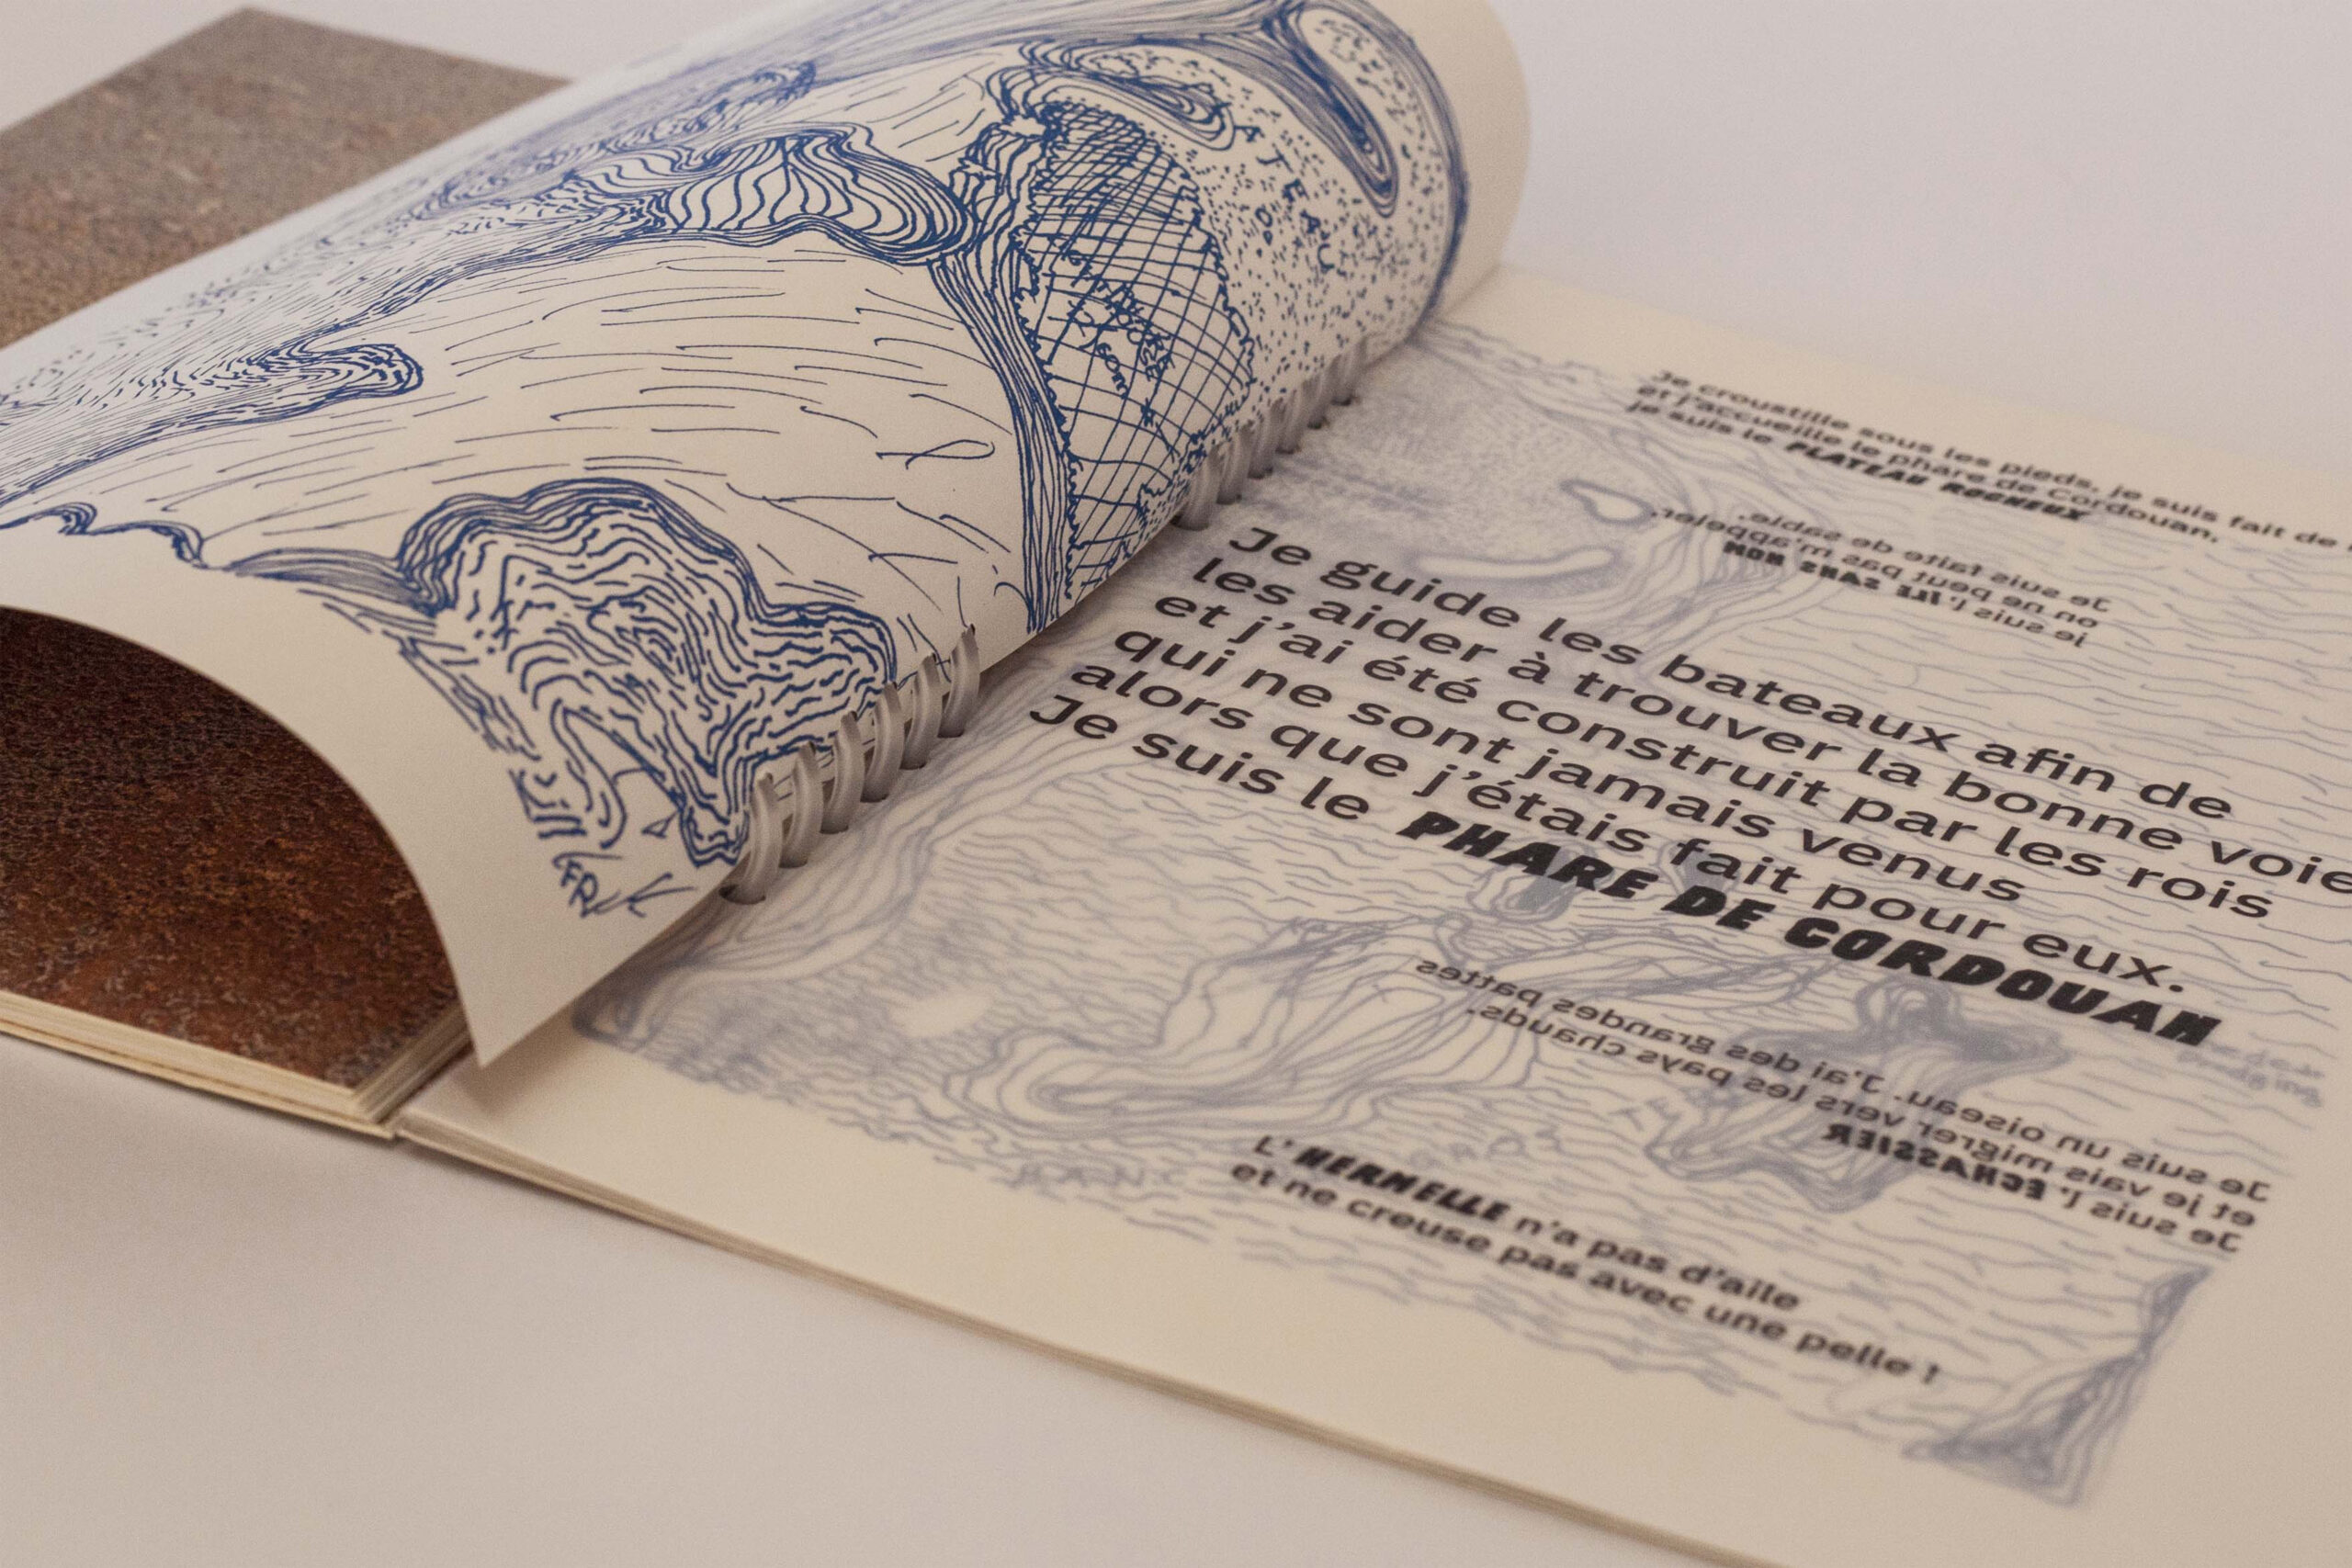 ATEAU
Je croustille sous les pieds, je suis fait de
et j'accueille le phare de Cordouan,
je suis le PLATEAU ROCHEUX
Je suis faite de sable,
on ne peut pas m'appeler.
je suis l'ILE SANS NOM
Je guide les bateaux afin de
les aider à trouver la bonne voie
et j'ai été construit par les rois
qui ne sont jamais venus
alors que j'étais fait pour eux.
Je suis le PHARE DE CORDOUAN
Je suis un oiseau. J'ai des grandes pattes
et je vais migrer vers les pays chauds.
Je suis l'ECHASSIER
L'HERMELLE n'a pas d'aile
et ne creuse pas avec une pelle !